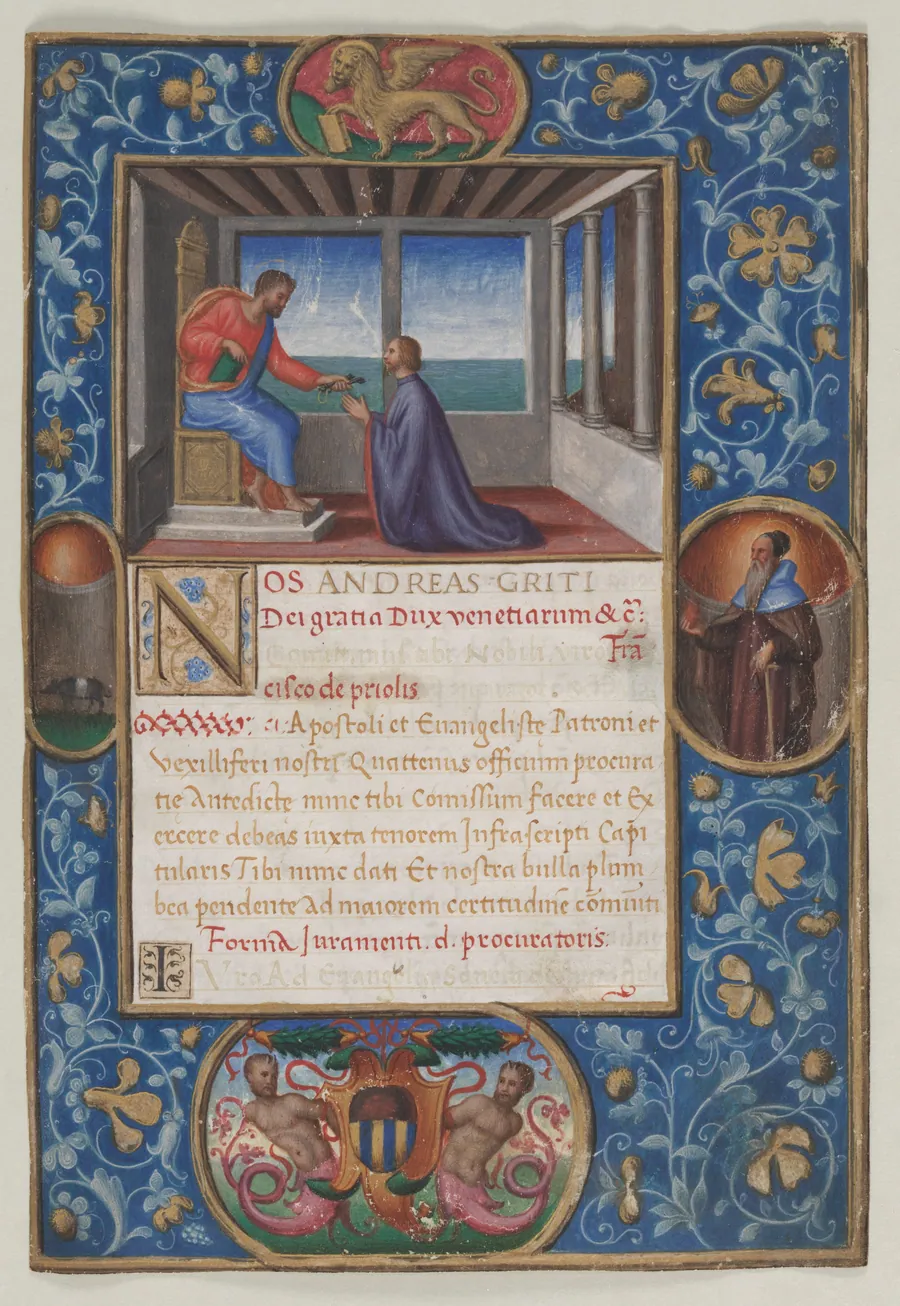 NOS ANDREAS GRITI
Dei gratia Dux venetiarum & c̃:
Frã
cisco de priolis
Apostoli et Euangeliste Patroni et
vexilliferi nostri Quattenus officium procura
tie Antedicte nunc tibi Comissum facere et Ex
ercere debeas iuxta tenorem Infrascripti Capi
tularis Tibi nunc dati Et nostra bulla plum
bea pendente Ad maiorem certitudinẽ
Forma Iuramenti . d . procuratoris.
I